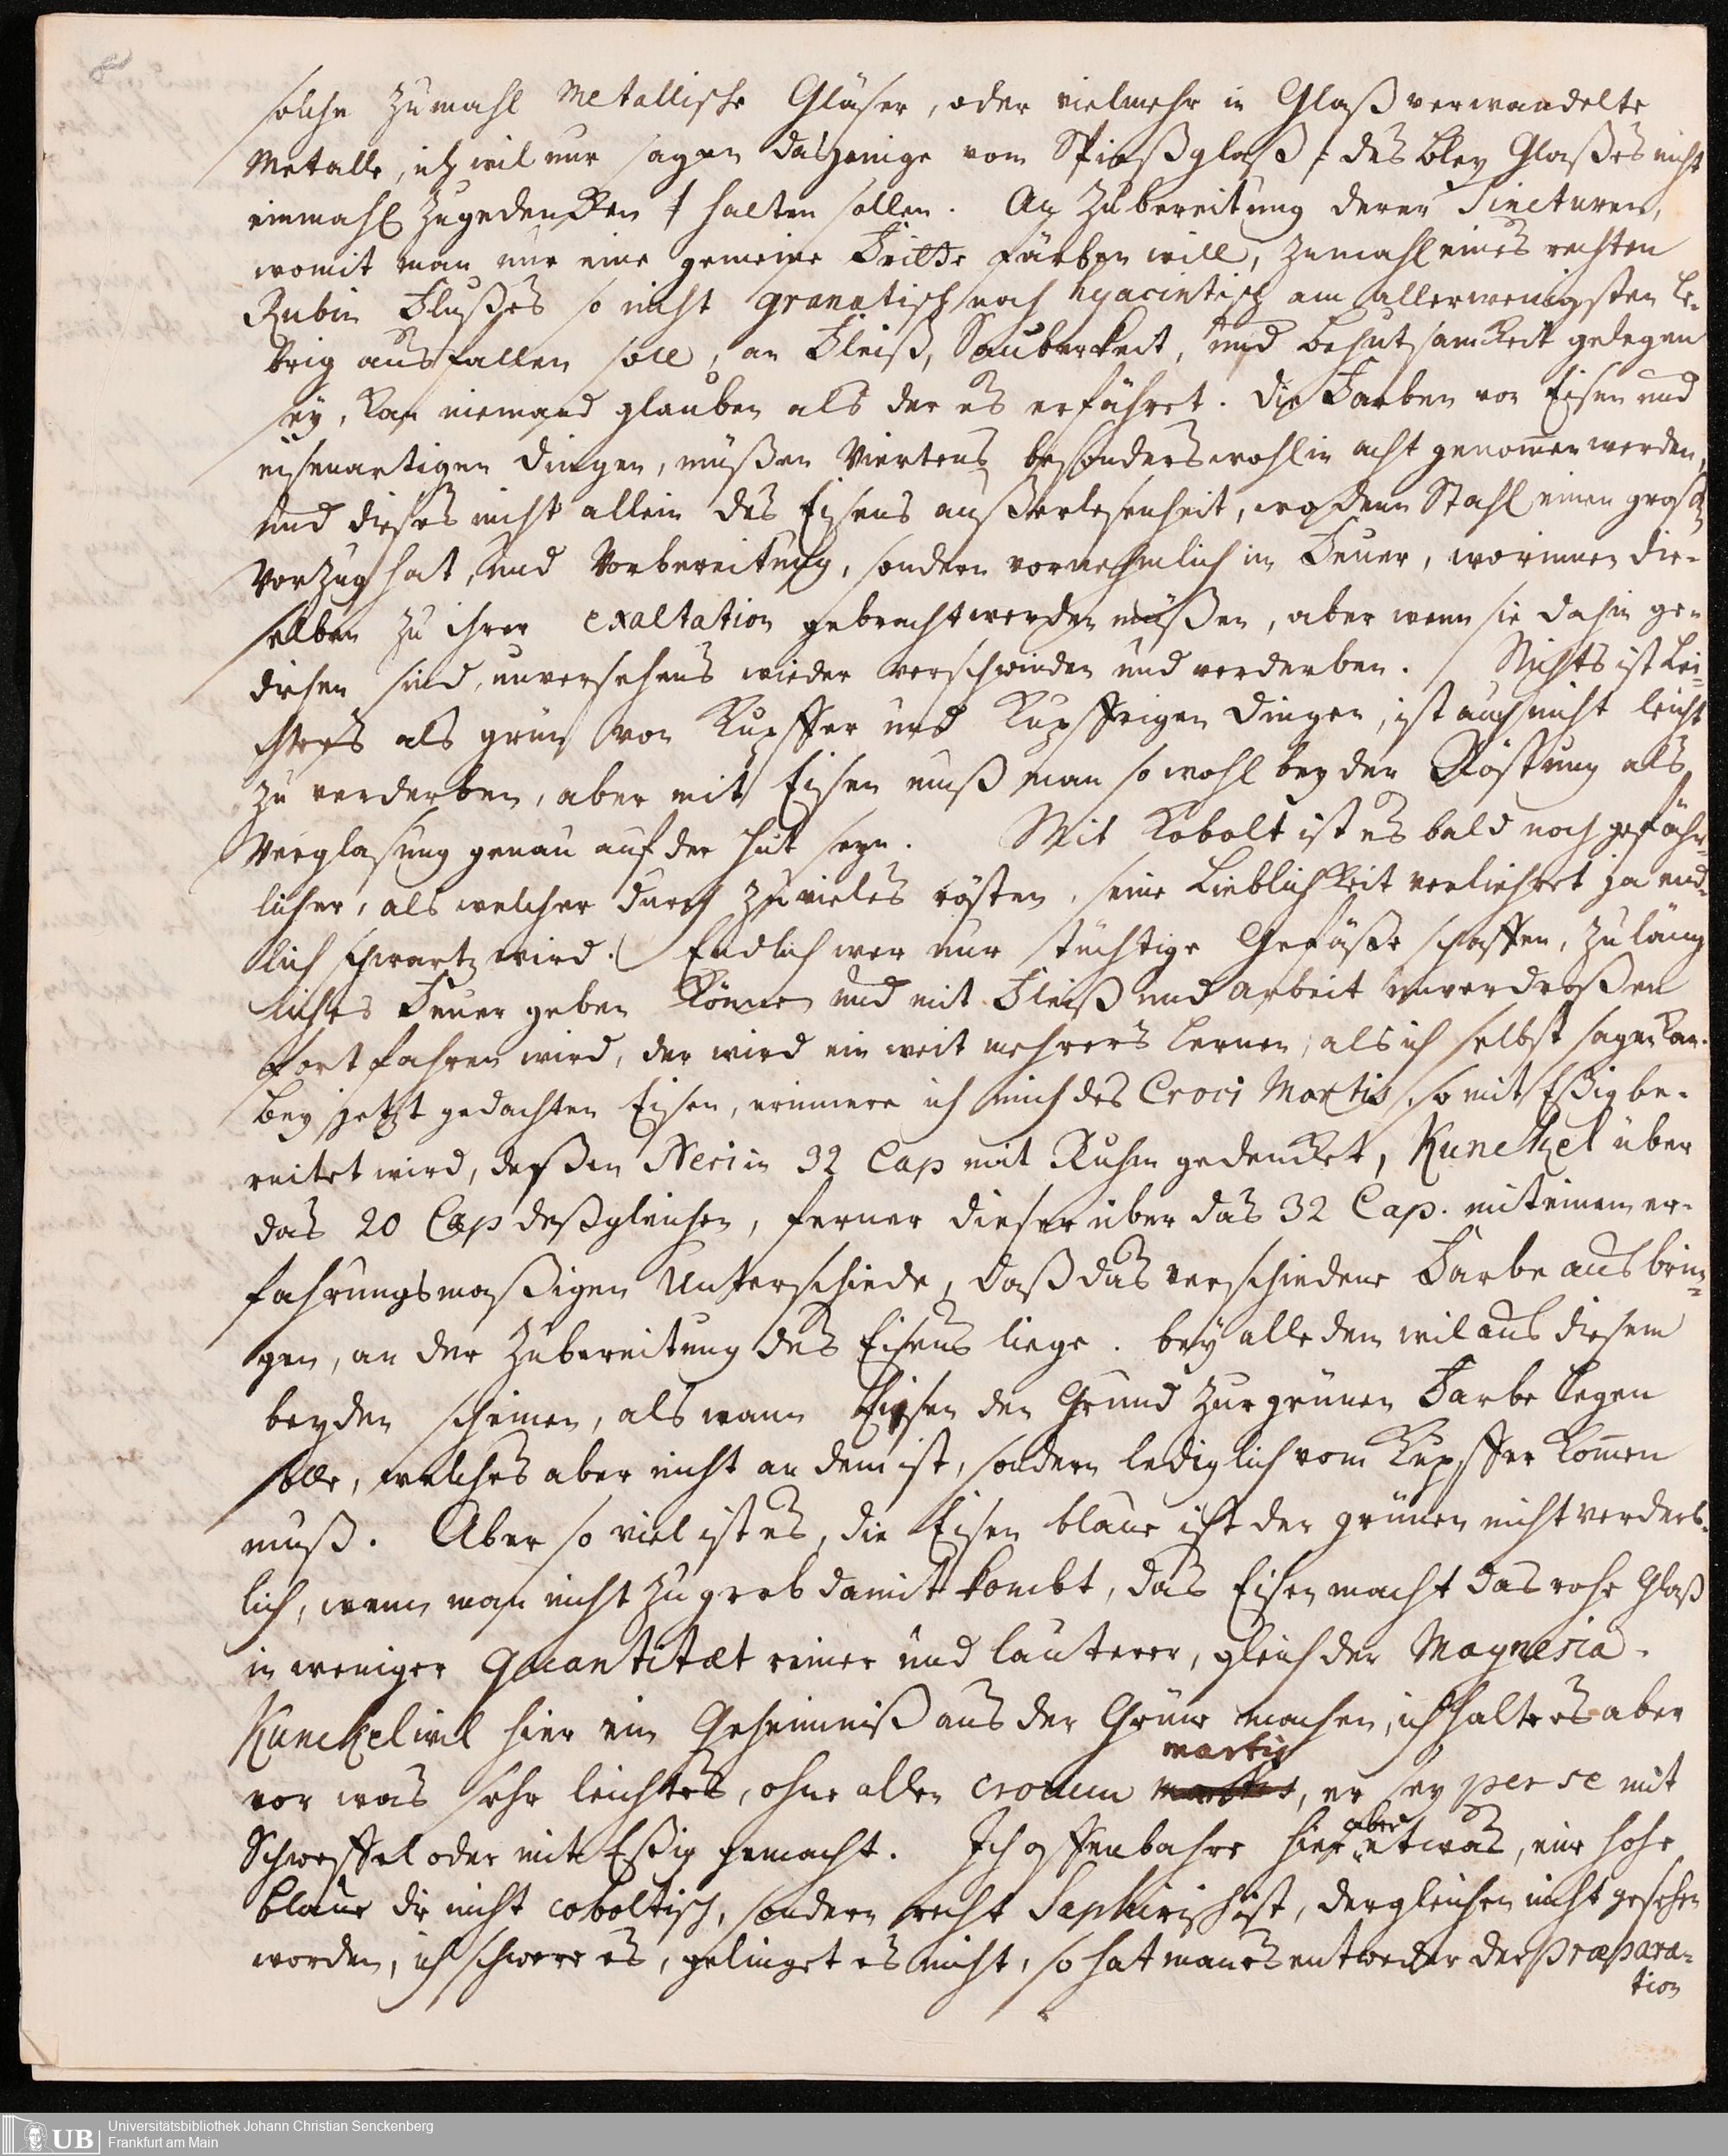 8
solche zumahl Metallische Gläser, oder vielmehr in Glaß verwandelte
Metalle, ich wil nur sagen dasjenige vom Spießglaß /: des Bley Glaßes nicht
einmahl zugedencken :/ halten sollen. An Zubereitung derer Tincturen,
womit man nur eine gemeine Fritte färben will, zumahl eines rechten
Rubin Flußes so nicht granatisch noch hyacintisch am allerwenigsten le-
brig ausfallen soll, an Fleiß, Sauberkeit, und behutsamkeit gelegen
sey, kan niemand glauben als der es erfähret. Die Farben von Eisen und
eisenartigen dingen, müßen Viertens besonders wohl in acht genommen werden,
und dieses nicht allein des Eisens außerlesenheit, wo denn Stahl einen großen
Vorzug hat, und Vorbereitung, sondern vornehmlich im Feuer, worinnen die-
selben zu ihrer exaltation gebracht werden müßen, aber wenn sie dahin ge-
diehen sind, unversehens wieder verschwinden und verderben. Nichts ist lei-
chters als grün von Kupffer und Kupffrigen dingen, ist auch nicht leicht
zu verderben, aber mit Eisen muß man so wohl bey der Röstung als
Verglasung genau auf der Hut seyn. Mit Kobolt ist es bald noch gefähr-
licher, als welcher durch zu vieles rösten, seine Lieblichkeit verliehret ja end-
lich schwartz wird. Endlich wer nur tüchtige Gefäße schaffen, zuläng
liches Feuer geben könne und mit Fleiß und Arbeit unverdroßen
fortfahren wird, der wird ein weit mehrers lernen, als ich selbst sagen kan.
Bey jetzt gedachten Eisen, erinnere ich mich des Croci Martis, so mit Eßig be-
reitet wird, deßen Neri in 32 Cap mit Ruhm gedencket, Kunckel über
das 20 Cap deßgleichen, ferner dieser über das 32 Cap. mit einem er-
fahrungsmaßigen Unterschiede, daß das verschiedene Farbe ausbrin-
gen, an der Zubereitung des Eisens liege. bey alledem wil aus diesem
beyden scheinen, als wann Eisen den Grund zur grünen Farbe legen
solle, welches aber nicht an dem ist, sondern lediglich vom Kupffer kommen
muß. Aber so viel ist es, die Eisen blaue ist der grünen nicht verderb-
lich, wenn man nicht zu grob damit kombt, das Eisen macht das rohe Glaß
in weniger Quantitæt reiner und lauterer, gleich der Magnesia.
Kunckel wil hier ein Geheimniß aus der Grüne machen, ich halte es aber
vor was sehr leichtes, ohne allen crocum martis, er sey per se mit
Schweffel oder mit Eßig gemacht. Ich offenbahre hier aber etwas, eine hohe
blaue die nicht coboltisch, sondern recht Saphirisch ist, dergleichen nicht gesehen
worden, ich schwere es, gelinget es nicht, so hat man es entweder der præpara-
tion
UB Universitätsbibliothek Johann Christian Senckenberg
Frankfurt am Main